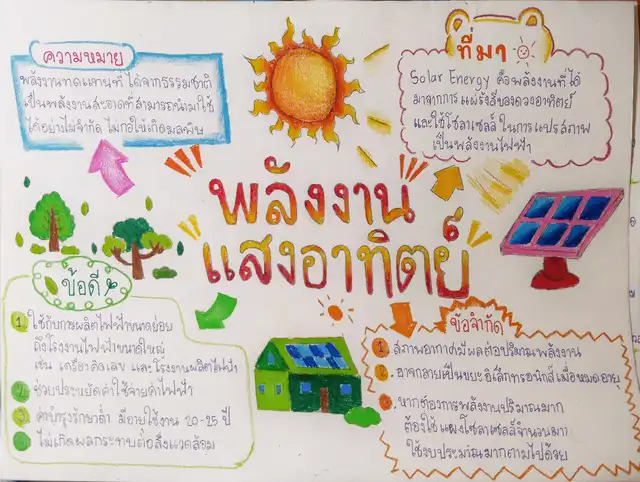 ความหมาย
พลังงานทดแทนที่ ได้จากธรรมชาติ
เป็นพลังงานสะอาดที่สามารถนำมาใช้
ได้อย่างไม่จำกัด ไม่ก่อให้เกิดมลพิษ
ที่มา
Solar Energy คือพลังงานที่ได้
มาจากการแผ่รังสีของดวงอาทิตย์
และใช้โซลาเซลล์ ในการแปรสภาพ
เป็นพลังงานไฟฟ้า
พลังงาน
แสงอาทิตย์
ข้อดี
1 ใช้กับการผลิตไฟฟ้าขนาดย่อย
ถึงโรงงานไฟฟ้าขนาดใหญ่
เช่น เครื่องคิดเลข และโรงงานผลิตไฟฟ้า
2 ช่วยประหยัดค่าใช้จ่ายค่าไฟฟ้า
3 ค่าบำรุงรักษาต่ำ มีอายุใช้งาน 20-25 ปี
ไม่เกิดผลกระทบต่อสิ่งแวดล้อม
ข้อจำกัด
1. สภาพอากาศมีผลต่อปริมาณพลังงาน
2. อาจกลายเป็นขยะอิเล็กทรอนิกส์เมื่อหมดอายุ
หากต้องการพลังงานปริมาณมาก
ต้องใช้แผงโซลาเซลล์จำนวนมาก
ใช้งบประมาณมากตามไปด้วย